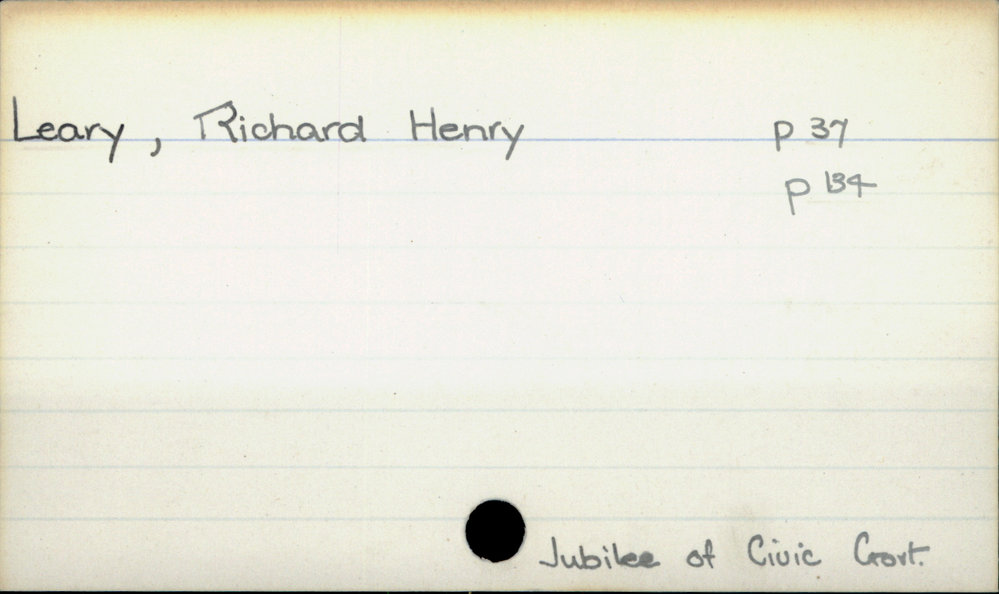 Leary, Richard Henry p 37
p 134
Jubilee of Civic Govt.